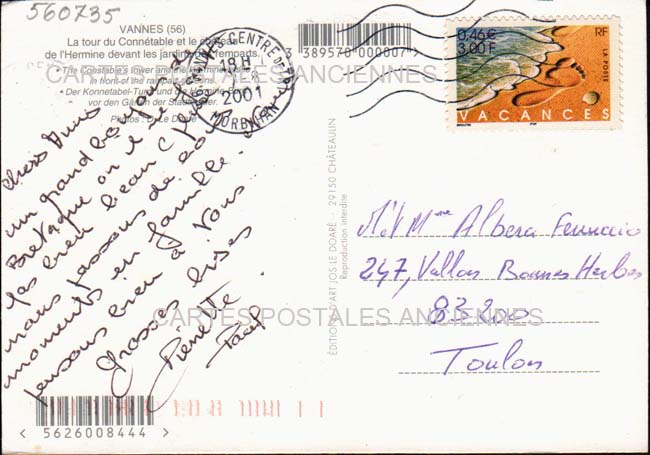 560735
VANNES (56)
La tour du Connétable et le château
de l'Hermine devant les jardins des remparts.
• The Constable's tower and the Hermine
in front of the rampart
• Der Konnetabel-Turm und die Hermine
vor den Gärten der Stadtmauer.
Photos : Le Doaré
Chers Amis
un grand bonjour de
Bretagne on
pas bien beau
nous passons de
moments en famille.
pensons bien à Vous.
grosses bises
Pierrette
CENTRE
18H
2001
MORBIHAN
3 389570 000007
0,46 €
3,00 F
RF
LA POSTE
VACANCES
ÉDITIONS D'ART JOS LE DOARÉ - 29150 CHÂTEAULIN
Reproduction interdite
M. et Mme Albera
247, Vallon Bonnes Herbes
83200
Toulon
CARTES POSTALES ANCIENNES
CARTES POSTALES ANCIENNES
< 5626008444 >